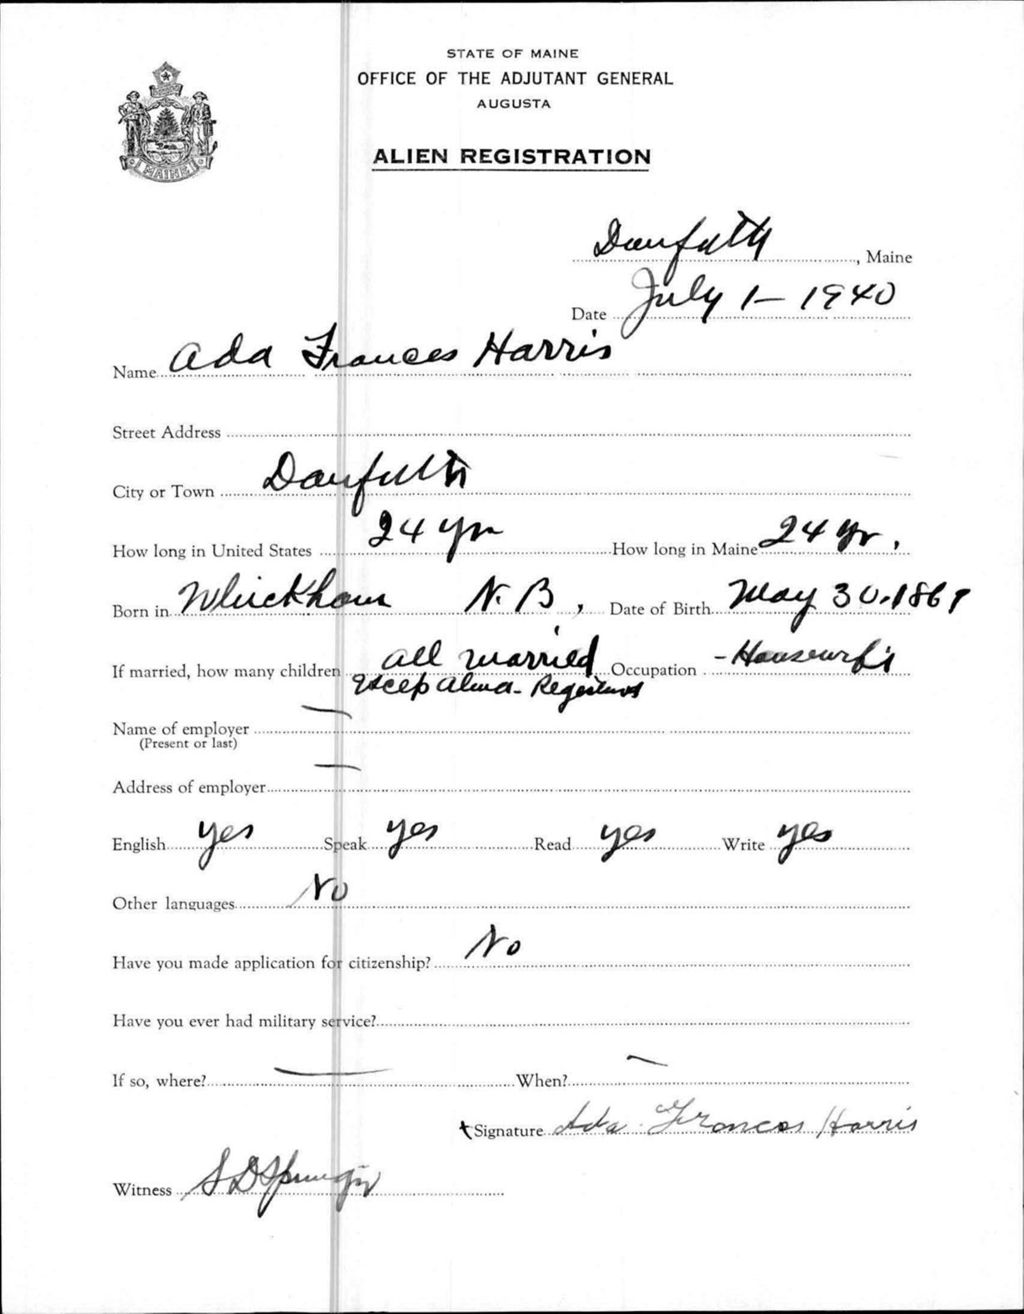 STATE OF MAINE
OFFICE OF THE ADJUTANT GENERAL
AUGUSTA
ALIEN REGISTRATION
MAINE
Danforth, Maine
Date July 1- 1940
Name Ada Frances Harris
Street Address
City or Town Danforth
How long in United States 24 yrs How long in Maine 24 yr.
Born in N.B, Date of Birth May 30.
If married, how many children all married Occupation - Housewife
Excep Alma - Registered
Name of employer
(Present or last)
Address of employer
English yes Speak yes Read yes Write yes
Other languages No
Have you made application for citizenship? No
Have you ever had military service?
If so, where? When?
Signature Ada Frances Harris
Witness S D